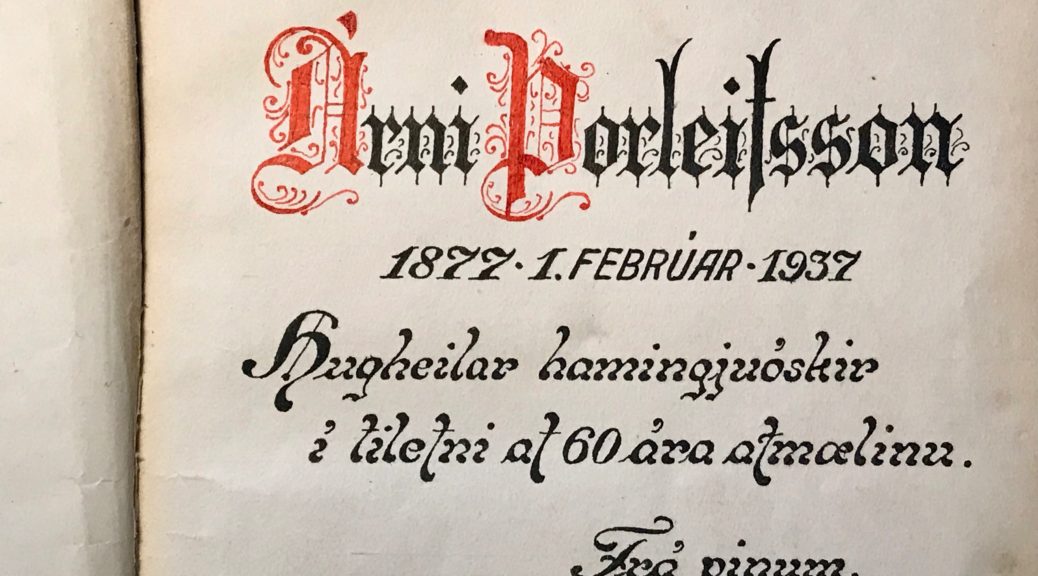 Árni Þorleifsson
1877 · 1. FEBRÚAR · 1937
Hugheilar hamingjuóskir
í tilefni af 60 ára afmælinu.
Frá þínum.